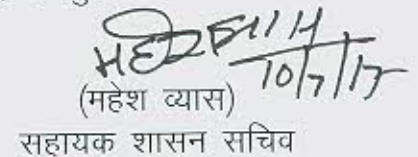 10/7/17
(महेश व्यास)
सहायक शासन सचिव